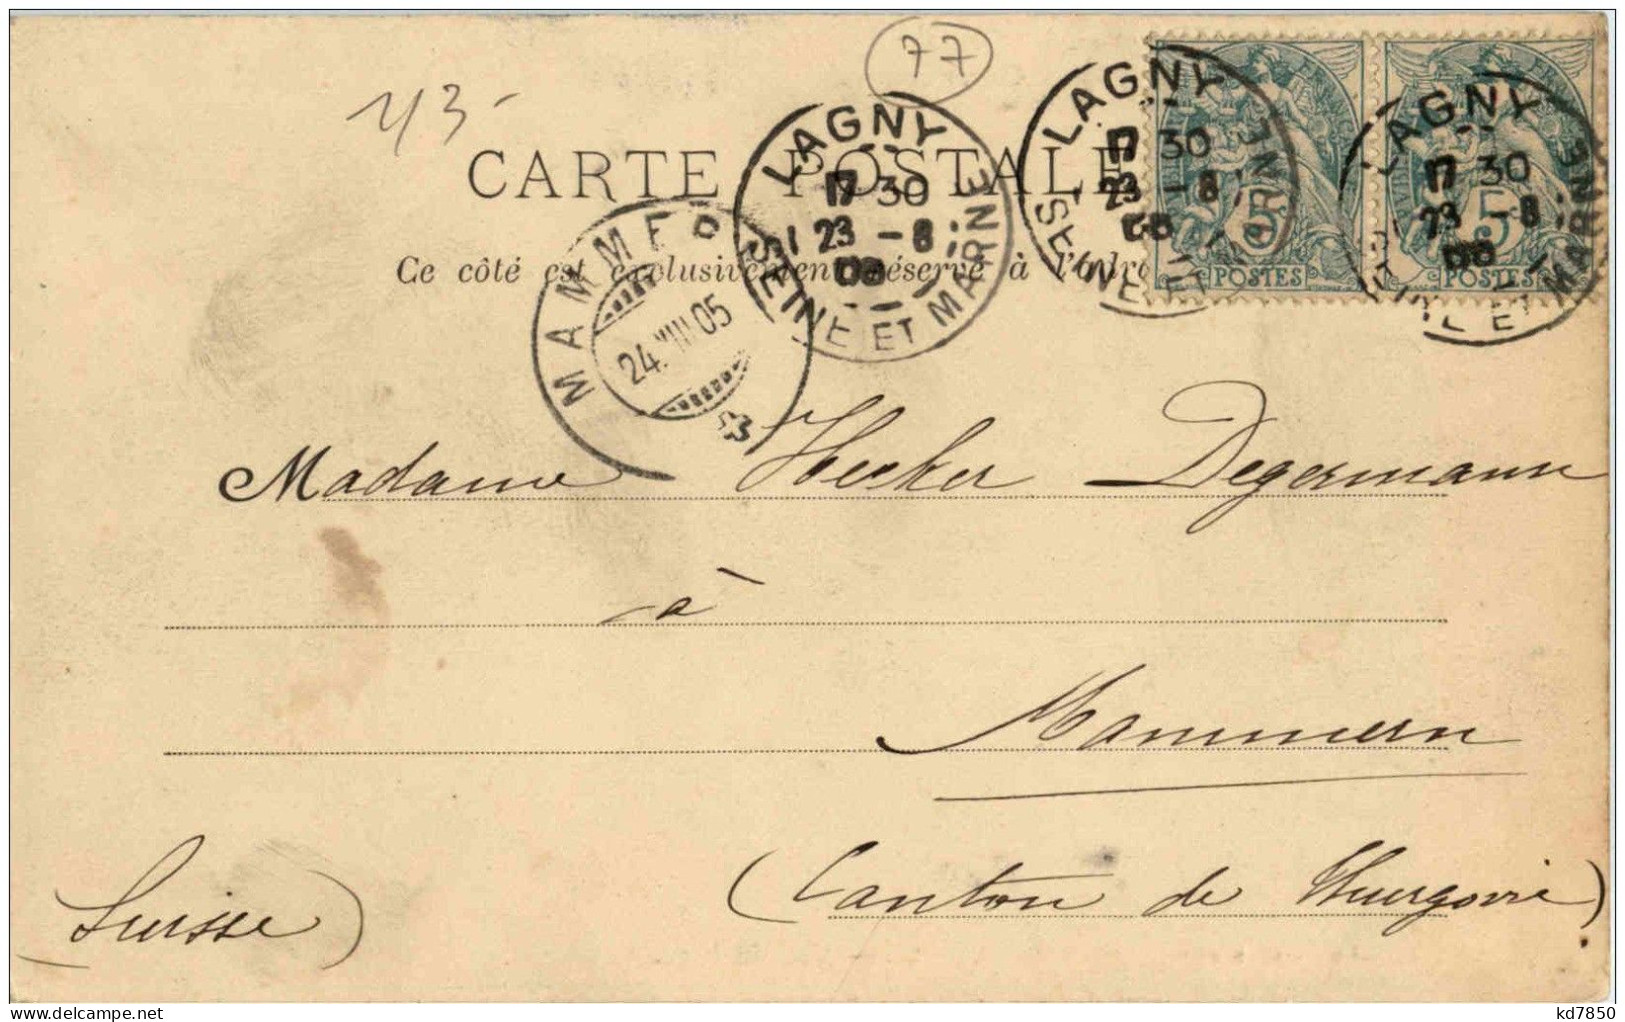 77
43-
CARTE POSTALE
Ce côté est exclusivement réservé à l'adre
LAGNY
17 30
23 -8
05
SEINE ET MARNE
LAGNY
17 30
23 -8
SEINE ET MARNE
LAGNY
17 30
23 -8
SEINE ET MARNE
5
POSTES
5
POSTES
MAMMER
24.VIII.05
Madame Hecker Degermann
à
Mammern
(Canton de Thurgovie)
(Suisse)
www.delcampe.net
kd7850